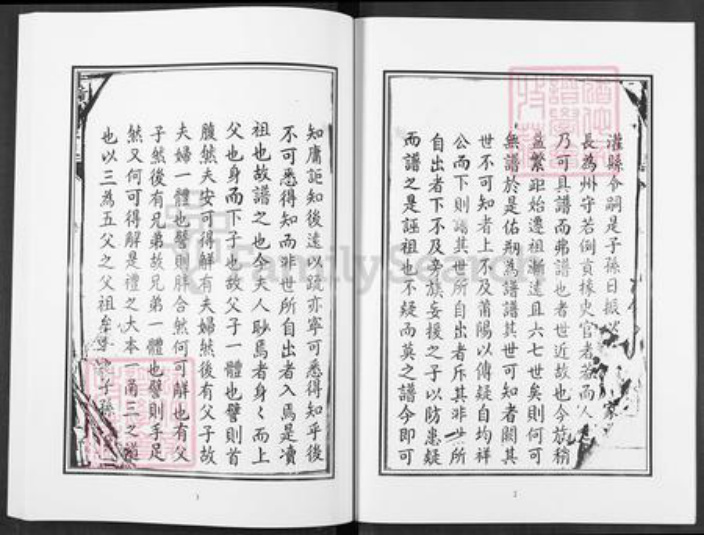 灌縣令嗣是子孫日振
長為州守若倒貢椽史官者
乃可具譜而弗譜也者世近故也今族稍
益繁距始遷祖漸遠且六七世矣則何可
無譜於是佑翔為譜譜其世可知者闕其
世不可知者上不及莆陽以傳疑自均祥
公而下則譜其世所自出者斥其非世所
自出者下不及旁族妄援之子以防患疑
而譜之是誣祖也不疑而莫之譜今即可
知庸詎知後遠以疏亦寧可悉得知乎後
不可悉得知而非世所自出者入焉是凟
祖也故譜之也今夫人眇焉者身〻而上
父也身而下子也故父子一體也譬則首
腹然夫安可得解有夫婦然後有父子故
夫婦一體也譬則胖合然何可解也有父
子然後有兄弟故兄弟一體也譬則手足
然又何可得解是禮之大本一而三之道
也以三為五父之父祖
子孫
FamilySearch
1
2